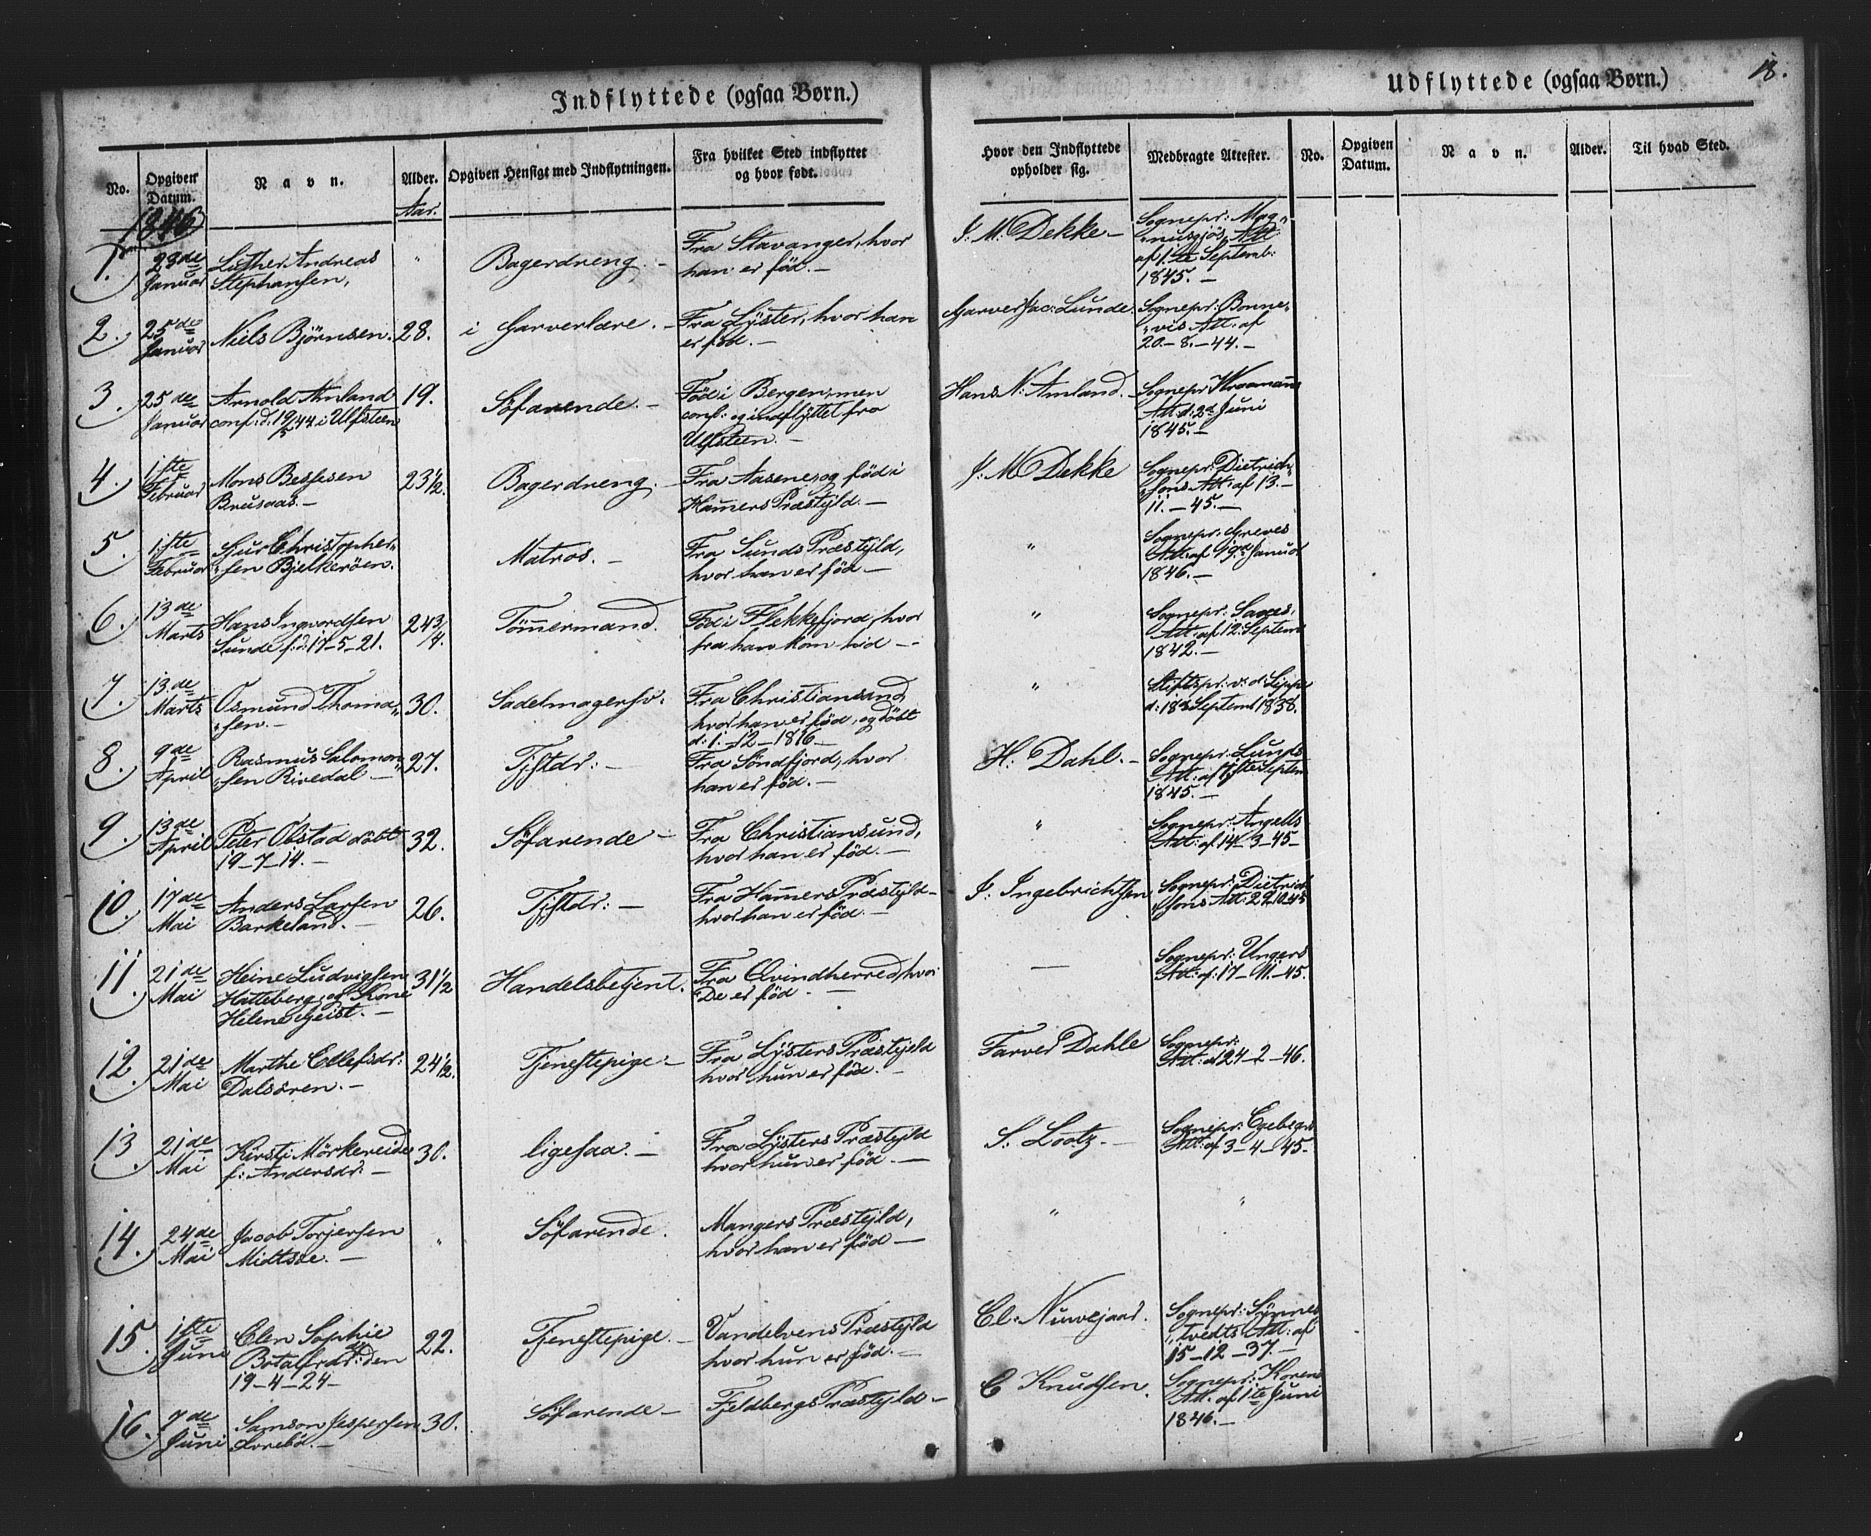 Indflyttede (ogsaa Børn.)
Udflyttede (ogsaa Børn.)
18.
No.
Opgiven Datum.
Navn.
Alder.
Opgiven Hensigt med Indflytningen.
Fra hvilket Sted indflyttet
og hvor født.
Hvor den Indflyttede
opholder sig.
Medbragte Attester.
No.
Opgiven Datum.
Navn.
Alder.
Til hvad Sted.
1846
Aar.
1. 28de Januar
Luther Andreas
Stephansen,
"
Bagerdreng. —
Fra Stavanger, hvor
han er föd. —
J. M. Dekke —
Sognepr: Mag-
nusgjös Att:
af 1. Septemb:
1845. —
2. 25de Januar
Niels Björnsen.
28.
i Garverlære. —
Fra Lyster, hvor han
er föd. —
Garver Jac: Lunde.
Sognepr: Bonne-
vis Att: af
20.-8.-44. —
3. 25de Januar
Arnold Amland
conf: d: 19/5 44 i Ulfsteen
19.
Söfarende. —
Föd i Bergen, men
conf: og indflyttet fra
Ulfsteen. —
Hans N. Amland. —
Sognepr:
Att: d: 2d Juni
1845. —
4. 1ste Februar
Mons Bessesen
Brusaas. —
23 1/2.
Bagerdreng. —
Fra Aasene, og föd i
Hamers Præstgjld. —
J. M. Dekke
Sognepr: Dietrich-
sons Att: af 13.-
11.-45. —
5. 1ste Februar
Sjur Christopher-
sen Bjelkeröen.
Matros. —
Fra Sunds Præstgjld,
hvor han er föd —
"
Sognepr: Greves
Att: af 19d Januar
1846. —
6. 13de Marts
Hans Ingvordsen
Sunde f. d: 17-5-21.
24 3/4.
Tömmermand.
Föd i Flekkefjord, hvor
fra han kom hid —
"
Sognepr:
Att: af 12. Septem
1842. —
7. 13de Marts
Osmund Thoma-
sen. —
30.
Sadelmagersv:
Fra Christiansand
hvor han er föd, og döbt
d: 1.-12-1816 —
"
Stiftspr: v: d: Lippe
d: 18d Septem 1838.
8. 9de April
Rasmus Salomon-
sen Rivedal —
27.
Tjstdr: —
Fra Söndfjord, hvor
han er föd. —
H: Dahl. —
Sognepr: Lunds
Att: af Septem
1845. —
9. 13de April
Peter Obstad döbt
19-7-14. —
32.
Söfarende —
Fra Christiansund,
hvor han er föd. —
"
Sognepr: Angells
Att: af 14-3-45 —
10. 17de Mai
Anders Larsen
Barkeland. —
26.
Tjstdr: —
Fra Hamers Præstgjld —
hvor han er föd. —
J. Ingebrichtsen
Sognepr: Dietrich-
sons Att: 22 10 45
11. 21de Mai
Heine Ludvigsen
Hatteberg, og Kone
Helene Geist. —
31 1/2
Handelsbetjent.
Fra Qvindherred, hvor
De er föd —
—
Sognepr: Ungers
Att: af: 17-11-45.
12. 21de Mai
Marthe Ellefsdr:
Dalsören. —
24 1/2.
Tjenestepige —
Fra Lysters Præstgjeld
hvor hun er föd. —
Farver Dahle
Sognepr:
Att: d 24-2-46.
13. 21de Mai
Kirsti Mörkereide
f: Andersdr: —
30.
ligesaa. —
Fra Lysters Præstgjld
hvor hun er föd. —
S: Lootz. —
Sognepr: Egebergs
Att: af 3-4-45 —
14. 24de Mai
Jacob Torjersen
Midtsæ. —
"
Söfarende.
Mangers Præstgjld,
hvor han er föd —
"
"
15. 1ste Juni
Elen Sophie
Botolfsdr: den
19-4-24 —
22.
Tjenestepige. —
Vandelvens Præstgjld
hvor hun er föd. —
Cl: Nuvejaar.
Sognepr: Synnes-
tvedts Att: af
15-12-37. —
16. 7de Juni
Samson Jespersen
Lorebö. —
30.
Söfarende —
Fjeldbergs Præstgjld —
C Knudsen.
Sognepr: Korens
Att. af 1te Juni
1846. —